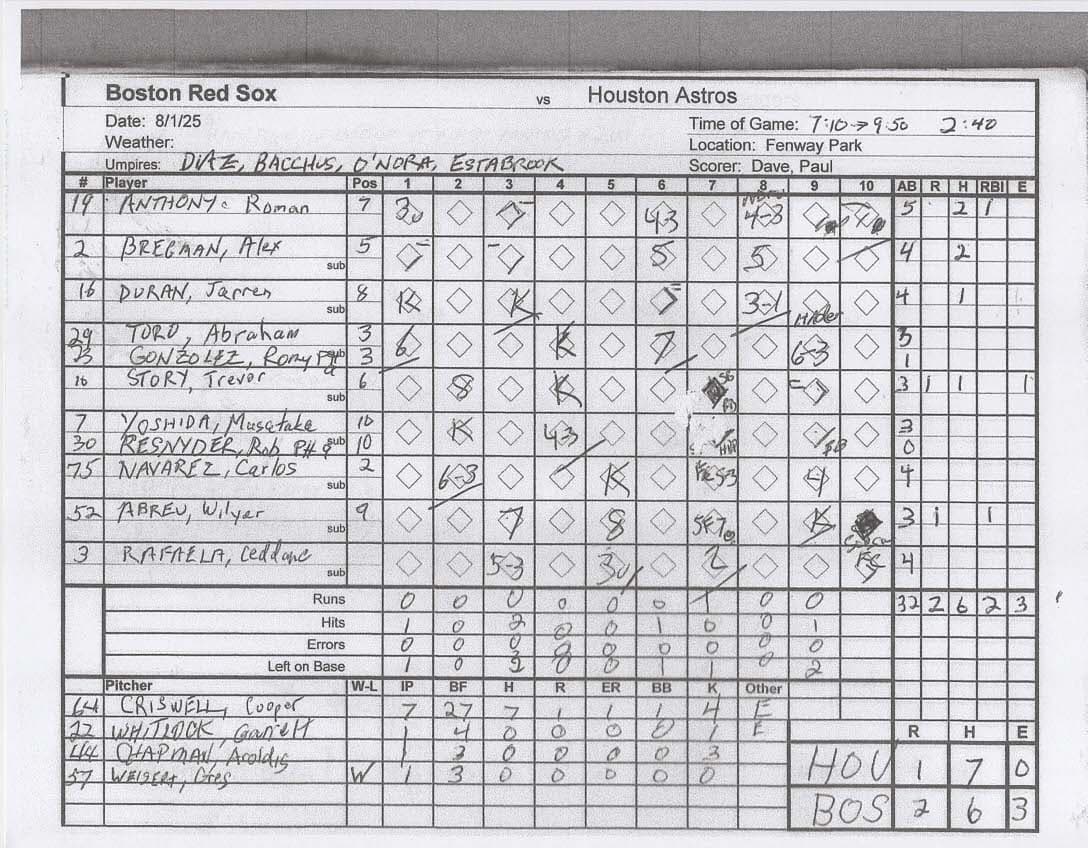 Boston Red Sox vs Houston Astros
Date: 8/1/25 Time of Game: 7:10→9:50 2:40
Weather: Location: Fenway Park
Umpires: DIAZ, BACCHUS, O'NORA, ESTABROOK Scorer: Dave, Paul
# Player Pos 1 2 3 4 5 6 7 8 9 10 AB R H RBI E
19 ANTHONY, Roman 7 3u 7 43 4-3 5 2 1
2 BREGMAN, Alex 5 7 7 5 5 4 2
sub
16 DURAN, Jarren 8 K K 7 3-1 4 1
sub Hader
29 TORO, Abraham 3 6 K 7 6-3 3
23 GONZOLEZ, Romy PH sub 3 1
10 STORY, Trevor 6 8 K SB 7 3 1 1 1
sub
7 YOSHIDA, Masatake 10 K 43 HBP SB 3
30 RESNYDER, Rob PH 9 sub 10 0
75 NAVAREZ, Carlos 2 6-3 K FC 5-3 4 4
sub
52 ABREU, Wilyer 9 7 8 SF7 K 3 1 1
sub
3 RAFAELA, Ceddane 5-3 3u 2 FC 5 4
sub
Runs 0 0 0 0 0 0 1 0 0 32 2 6 2 3
Hits 1 0 2 0 0 1 0 0 1
Errors 0 0 0 0 0 0 0 0 0
Left on Base 1 0 2 0 0 1 1 0 2
Pitcher W-L IP BF H R ER BB K Other
64 CRISWELL, Cooper 7 27 7 1 1 1 4 E
22 WHITLOCK, Garrett 1 4 0 0 0 0 1 E R H E
44 CHAPMAN, Aroldis 1 3 0 0 0 0 3 HOU 1 7 0
57 WEISERT, Greg W 1 3 0 0 0 0 0
BOS 2 6 3